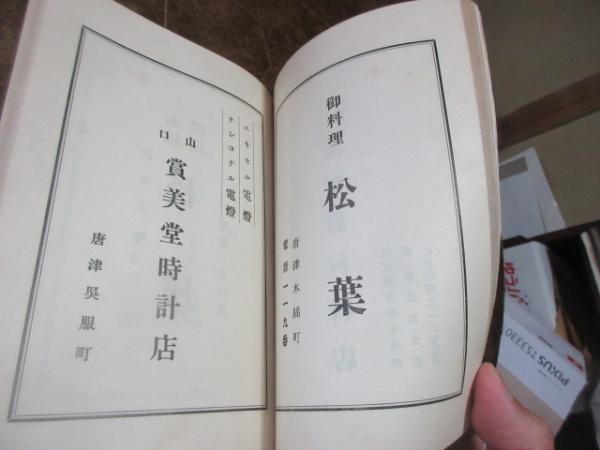 御料理
松葉
唐津木綿町
電話一一九番
エキセル電燈
ナショナル電燈
山口
賞美堂時計店
唐津呉服町
PIXUS TS3330